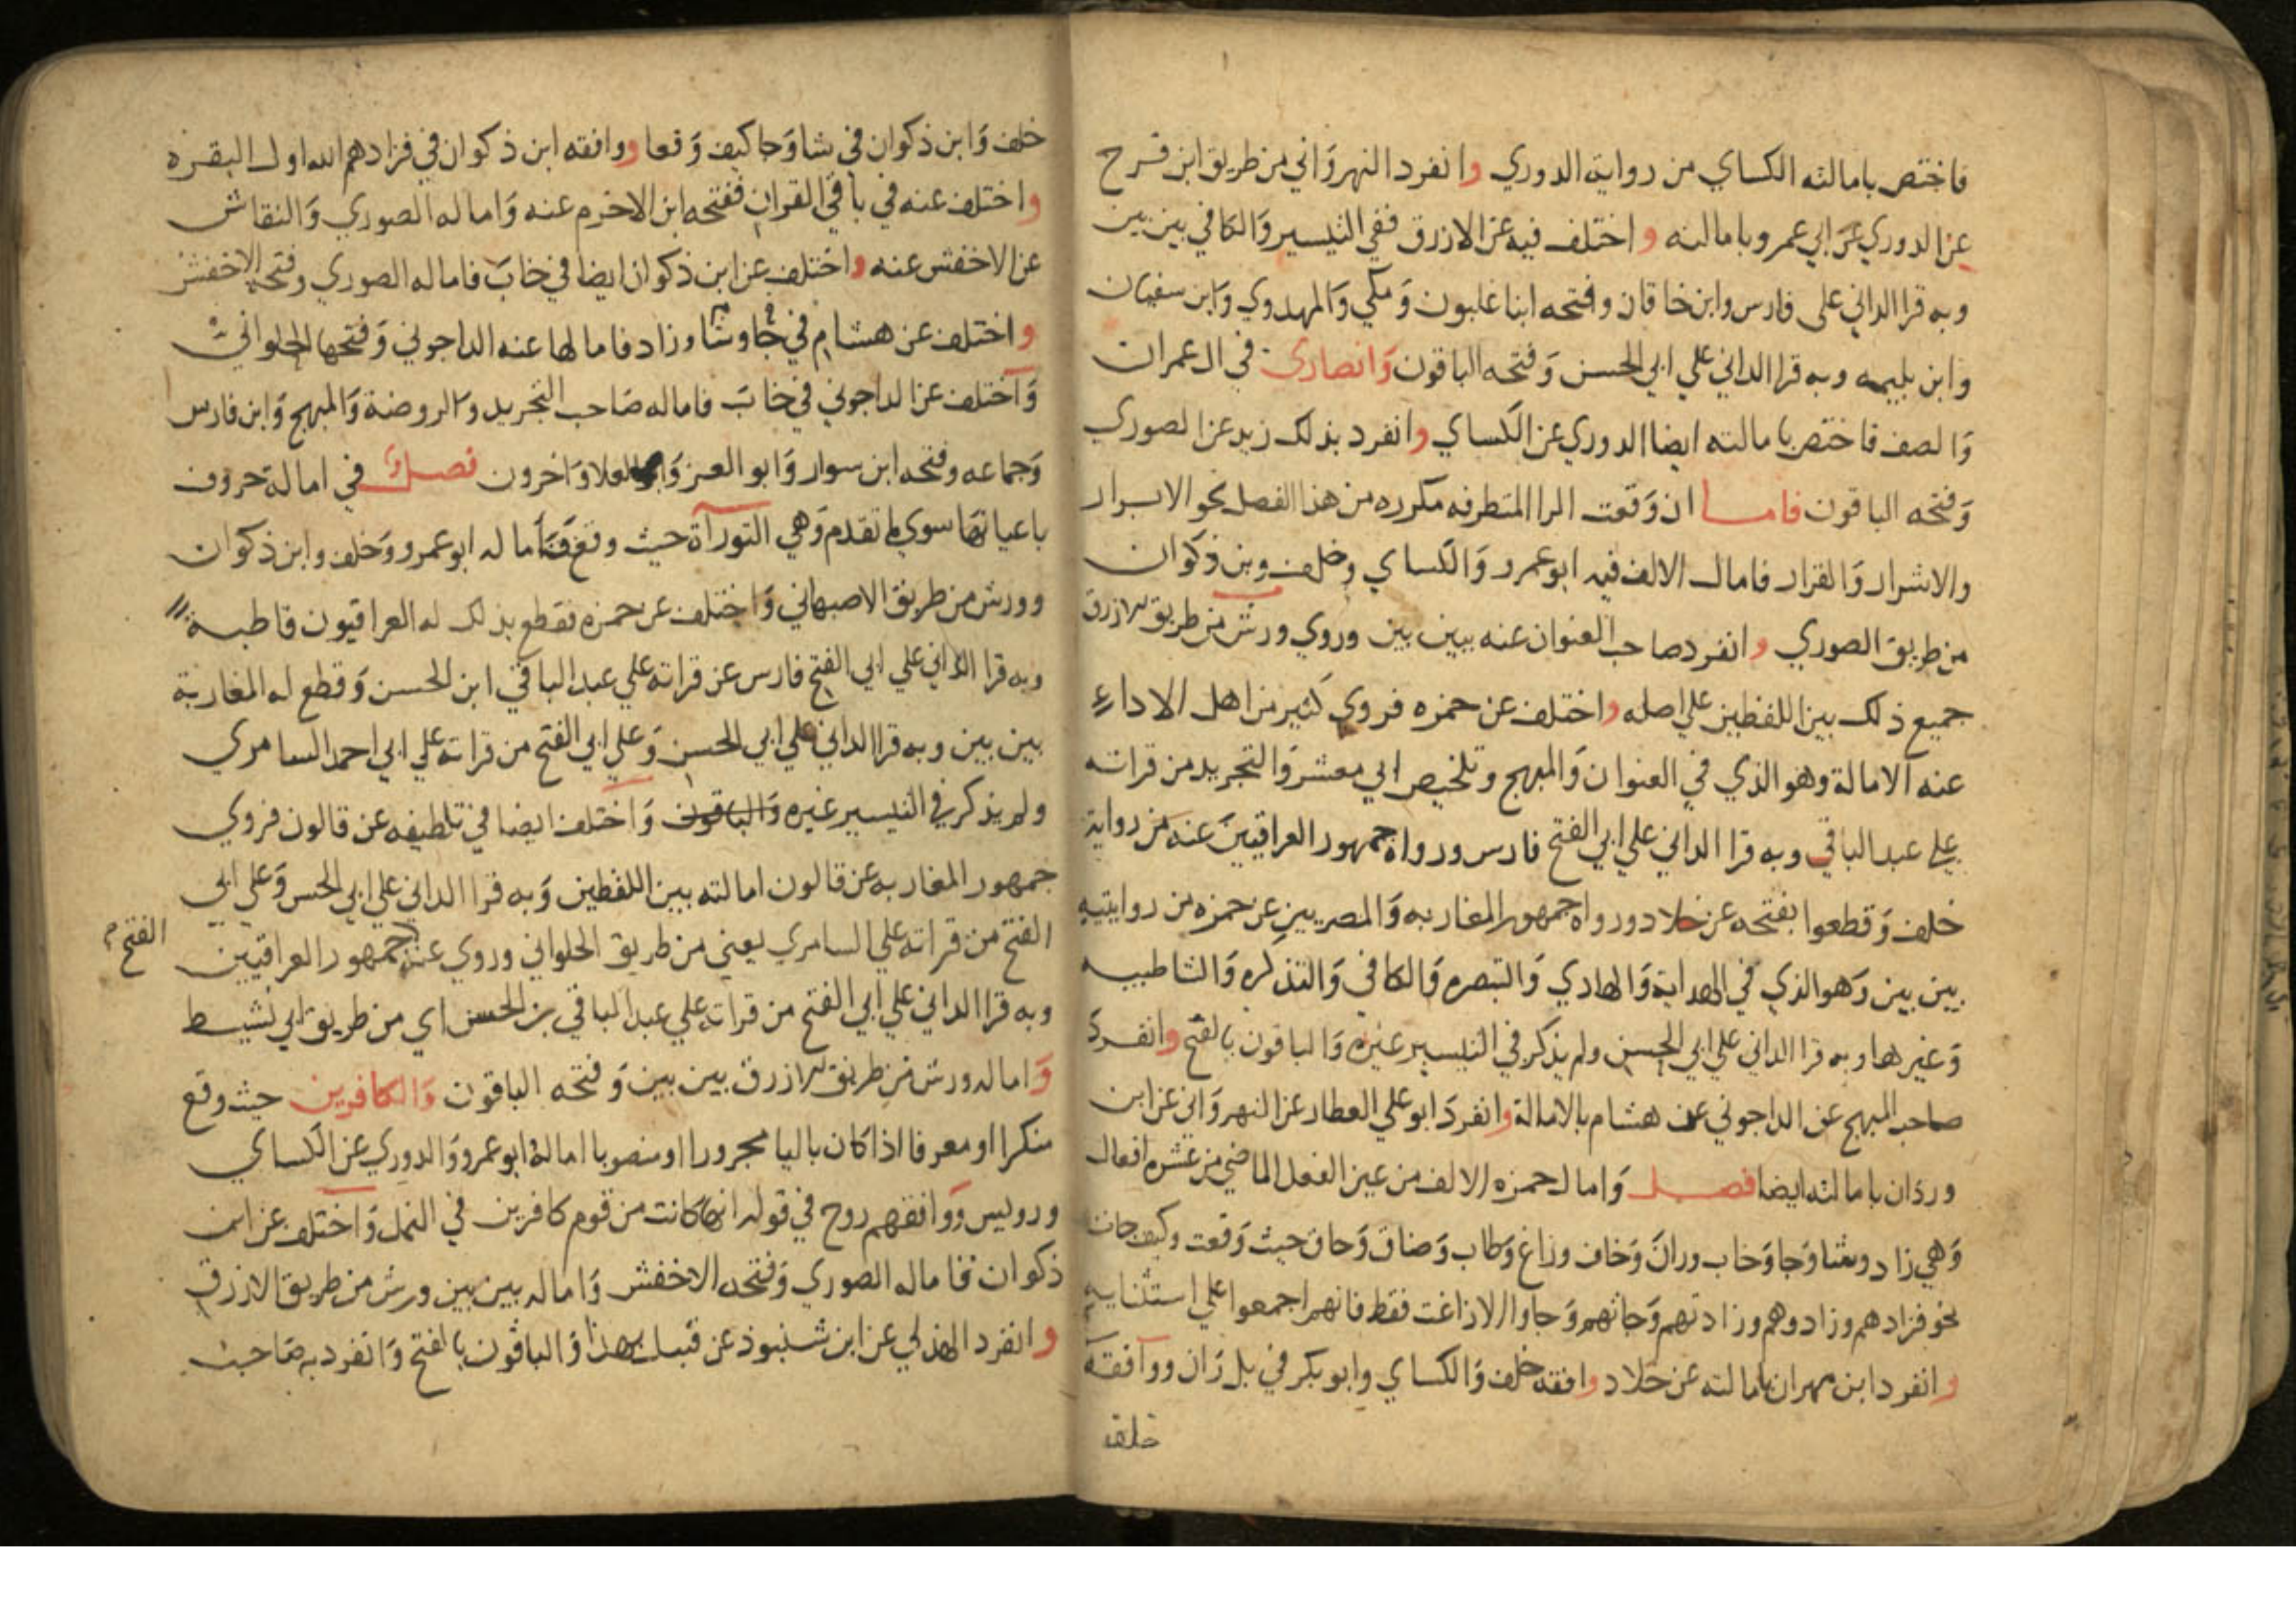 فاختص بامالته الكساي من رواية الدوري وانفرد النهرواني من طريق ابن فرح
عن الدوري عن ابي عمرو بامالته واختلف فيه عن الازرق ففي التيسير والكافي بين بين
وبه قرا الداني على فارس وابن خاقان وفتحه ابنا غلبون ومكي والمهدوي وابن سفيان
وابن بليمه وبه قرا الداني علي ابي الحسن وفتحه الباقون وانصارى في ال عمران
والصف فاختص بامالته ايضا الدوري عن الكساي وانفرد بذلك زيد عن الصوري
وفتحه الباقون فاما ان وقعت الرا المتطرفه مكرره من هذا الفصل نحو الابرار
والاشرار والقرار فامال الالف فيه ابو عمرو والكساي وخلف وبن ذكوان
من طريق الصوري وانفرد صاحب العنوان عنه ببين بين وروي ورش من طريق الازرق
جميع ذلك بين اللفظين علي اصله واختلف عن حمزه فروي كثير من اهل الاداء
عنه الامالة وهو الذي في العنوان والمبهج وتلخيص ابي معشر والتجريد من قراته
علي عبد الباقي وبه قرا الداني علي ابي الفتح فارس ورواه جمهور العراقيين عنه من رواية
خلف وقطعوا بفتحه عن خلاد ورواه جمهور المغاربه والمصريين عن حمزه من روايتيه
بين بين وهو الذي في الهداية والهادي والتبصره والكافي والتذكره والشاطبيه
وغيرها وبه قرا الداني علي ابي الحسن ولم يذكر في التيسير غيره والباقون بالفتح وانفرد
صاحب المبهج عن الداجوني عن هشام بالامالة وانفرد ابو علي العطار عن النهرواني عن ابن
وردان بامالته ايضا فصل وامال حمزه الالف من عين الفعل الماضي من عشره افعال
وهي زاد وشا وجا وخاب وران وخاف وزاغ وطاب وضاق وحاق حيث وقعت وكيف جات
نحو فزادهم وزادوهم وزادتهم وجاتهم وجاوا الا زاغت فقط فانهم اجمعوا علي استثنايه
وانفرد ابن مهران بامالته عن خلاد وافقه خلف والكساي وابو بكر في بل ران ووافقه
خلف
خلف وابن ذكوان في شا وجا كيف وقعا ووافقه ابن ذكوان في فزادهم الله اول البقره
واختلف عنه في باقي القران ففتحه ابن الاخرم عنه واماله الصوري والنقاش
عن الاخفش عنه واختلف عن ابن ذكوان ايضا في خاب فاماله الصوري وفتحه الاخفش
واختلف عن هشام في جا وشا وزاد فامالها عنه الداجوني وفتحها الحلواني
واختلف عن الداجوني في خاب فاماله صاحب التجريد والروضة والمبهج وابن فارس
وجماعه وفتحه ابن سوار وابو العز وابو العلا واخرون فصل في امالة حروف
باعيانها سوي ما تقدم وهي التوراة حيث وقع فاماله ابو عمرو وخلف وابن ذكوان
وورش من طريق الاصبهاني واختلف عن حمزه فقطع بذلك له العراقيون قاطبة
وبه قرا الداني علي ابي الفتح فارس عن قراته علي عبد الباقي ابن الحسن وقطع له المغاربة
بين بين وبه قرا الداني علي ابي الحسن وعلي ابي الفتح من قراته علي ابي احمد السامري
ولم يذكر في التيسير غيره والباقون واختلف ايضا في تلطيفه عن قالون فروي
جمهور المغاربه عن قالون امالته بين اللفظين وبه قرا الداني علي ابي الحسن وعلي ابي
الفتح من قراته علي السامري يعني من طريق الحلواني وروي عنه جمهور العراقيين
الفتح
وبه قرا الداني علي ابي الفتح من قراته علي عبد الباقي بن الحسن اي من طريق ابي نشيط
واماله ورش من طريق الازرق بين بين وفتحه الباقون والكافرين حيث وقع
منكرا او معرفا اذا كان باليا مجرورا او منصوبا امالة ابو عمرو والدوري عن الكساي
ورويس ووافقهم روح في قوله انها كانت من قوم كافرين في النمل واختلف عن ابن
ذكوان فاماله الصوري وفتحه الاخفش واماله بين بين ورش من طريق الازرق
وانفرد الهذلي عن ابن شنبوذ عن قنبل بهذا والباقون بالفتح وانفرد به صاحب